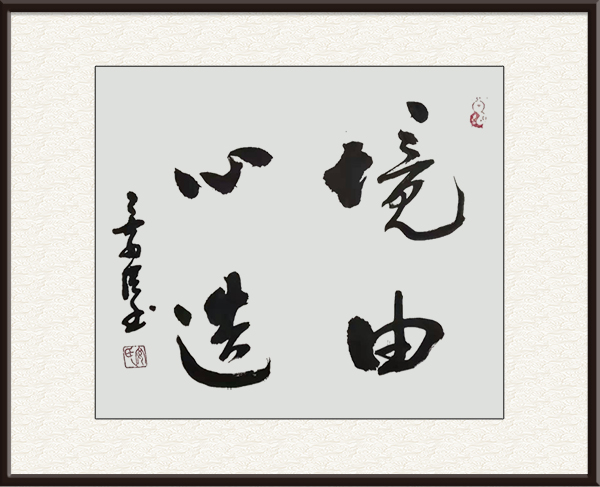 境由
心造